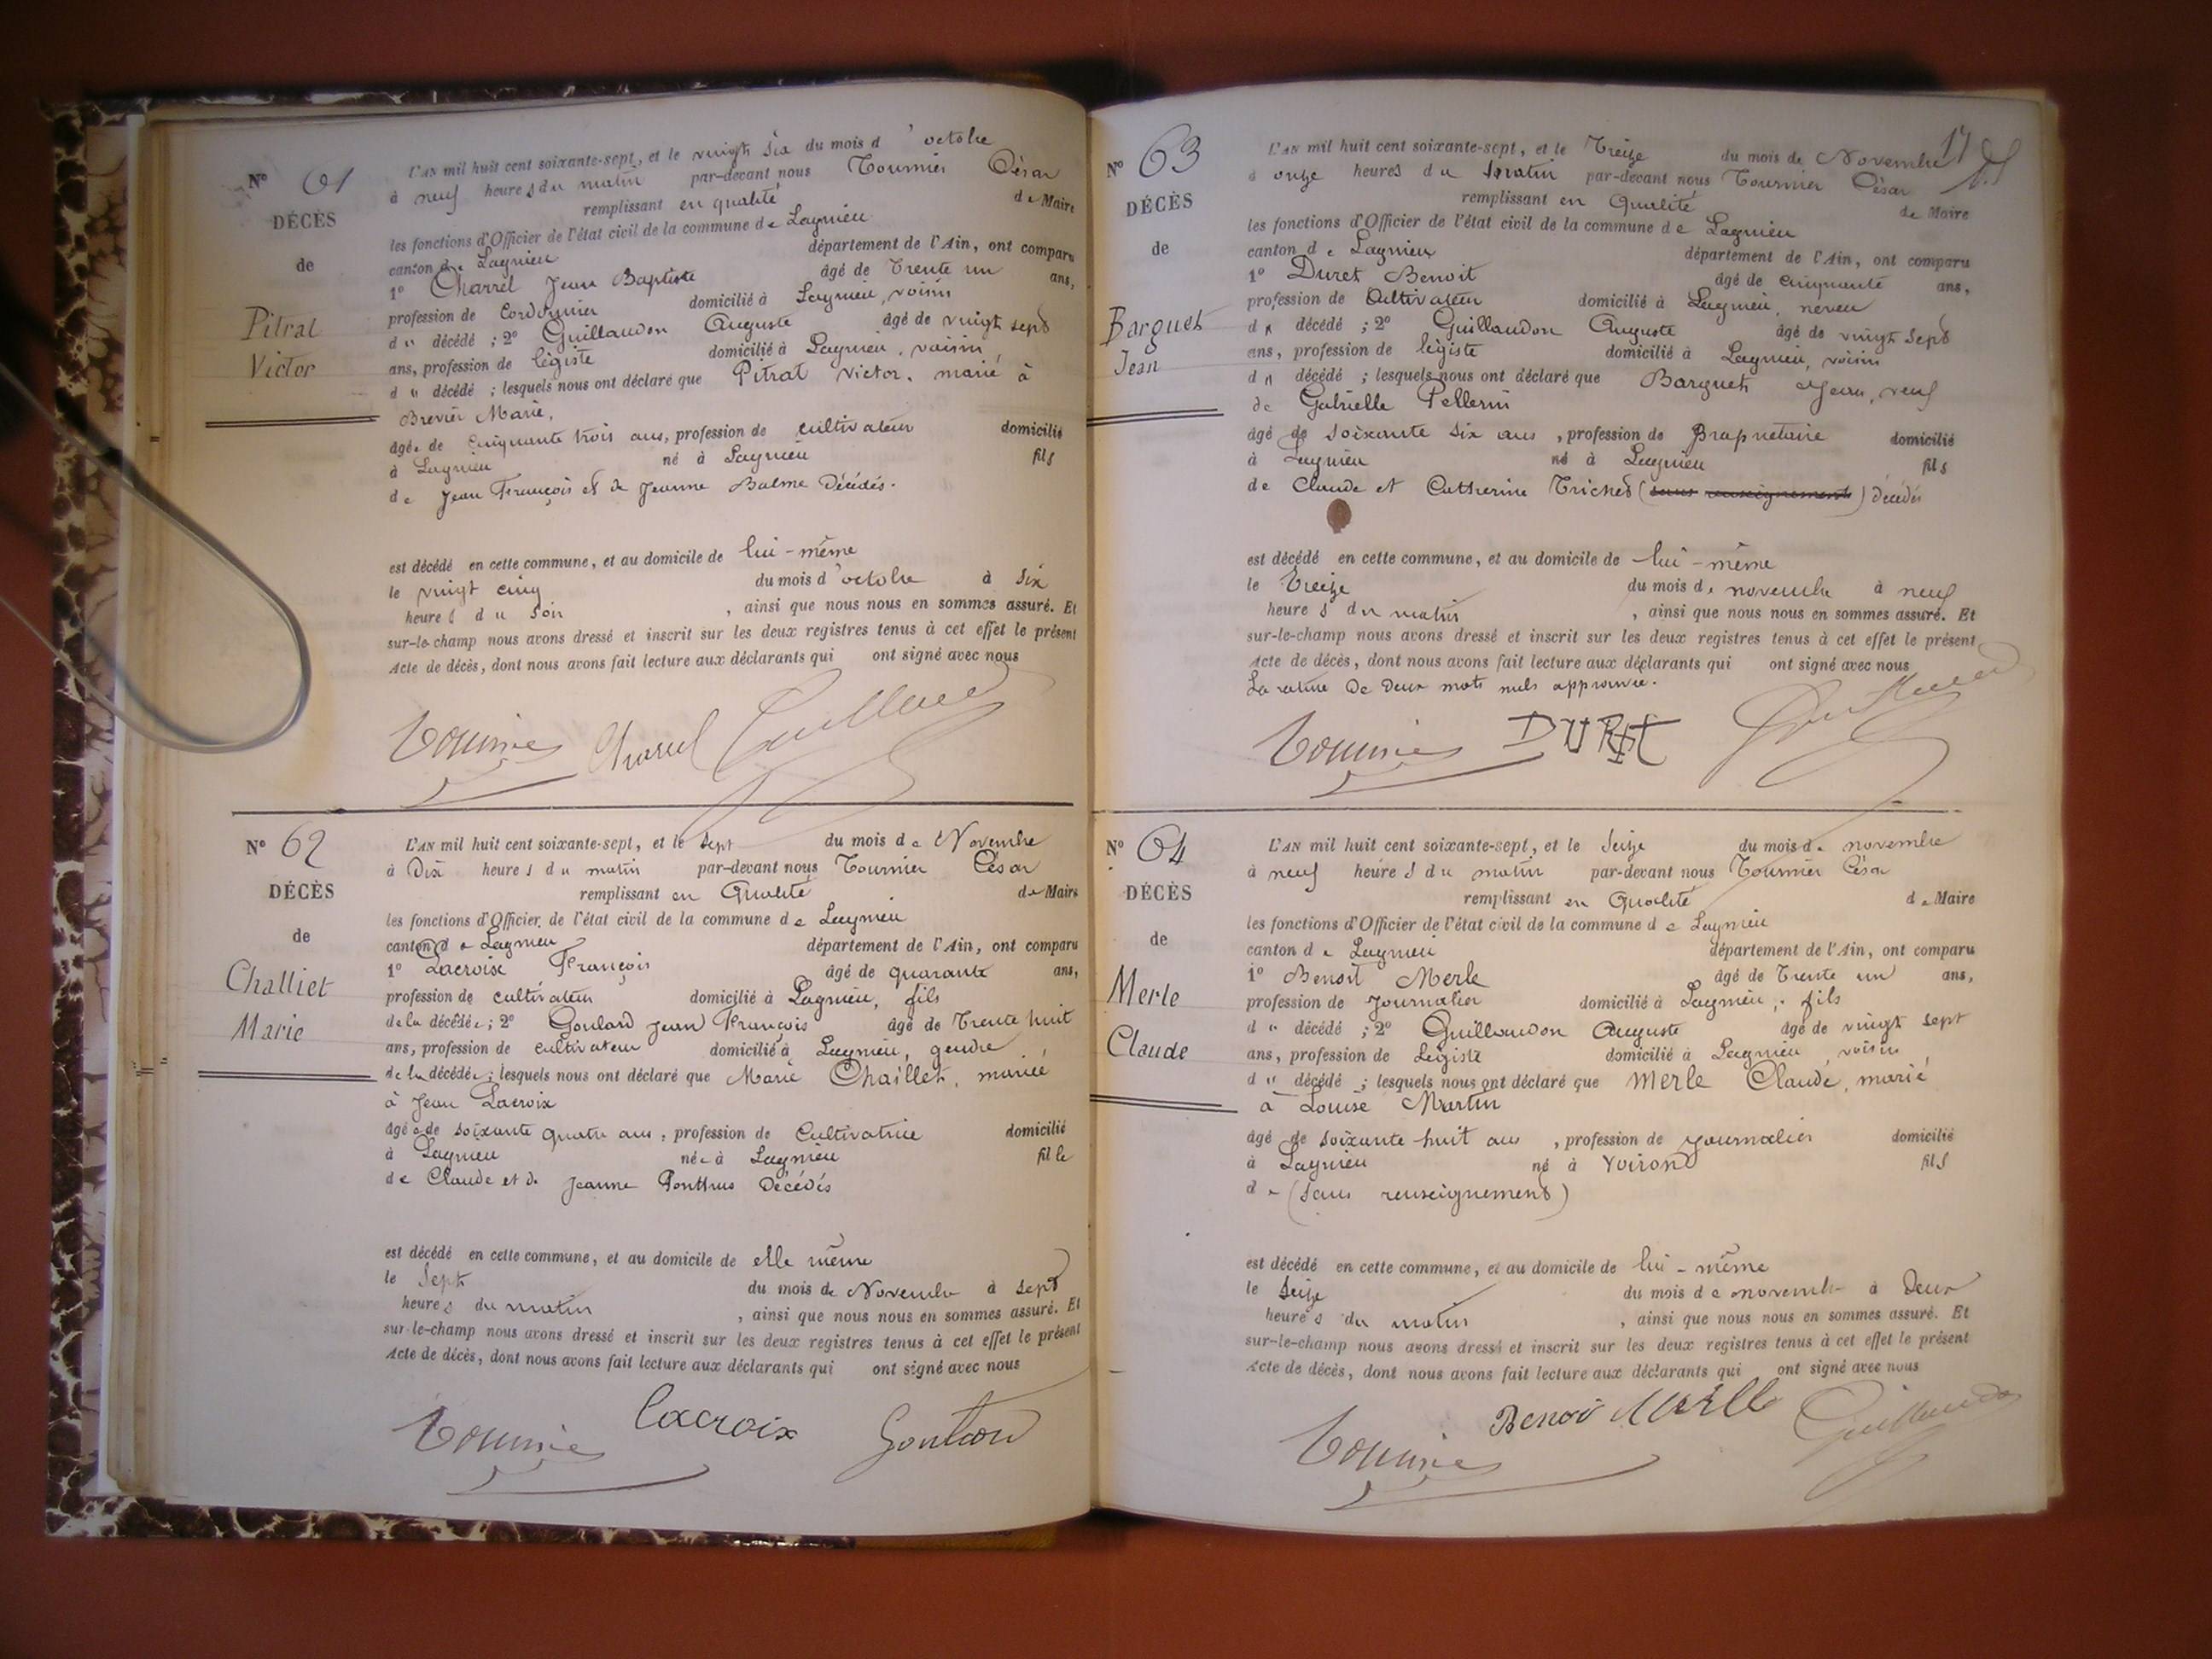 N° 61
DÉCÈS
de
Pitrat
Victor
L'AN mil huit cent soixante-sept, et le vingt six du mois d'octobre
à neuf heures du matin par-devant nous Tournier César
remplissant en qualité de Maire
les fonctions d'Officier de l'état civil de la commune de Lagnieu
canton de Lagnieu département de l'Ain, ont comparu
1° Charrel Jean Baptiste âgé de Trente un ans,
profession de Cordonnier domicilié à Lagnieu, voisin
du décédé ; 2° Guillaudon Auguste âgé de vingt sept
ans, profession de légiste domicilié à Lagnieu, voisin
du décédé ; lesquels nous ont déclaré que Pitrat Victor, marié à
Brevier Marie,
âgé de Cinquante trois ans, profession de cultivateur domicilié
à Lagnieu né à Lagnieu fils
de Jean François et de Jeanne Balme Décédés.
est décédé en cette commune, et au domicile de lui-même
le vingt cinq du mois d'octobre à six
heures du soir, ainsi que nous nous en sommes assuré. Et
sur-le-champ nous avons dressé et inscrit sur les deux registres tenus à cet effet le présent
Acte de décès, dont nous avons fait lecture aux déclarants qui ont signé avec nous
Tournier Charrel
N° 62
DÉCÈS
de
Challiet
Marie
L'AN mil huit cent soixante-sept, et le sept du mois de Novembre
à Dix heures du matin par-devant nous Tournier César
remplissant en Qualité de Maire
les fonctions d'Officier de l'état civil de la commune de Lagnieu
canton de Lagnieu département de l'Ain, ont comparu
1° Lacroix François âgé de quarante ans,
profession de cultivateur domicilié à Lagnieu, fils
de la décédée ; 2° Goulard Jean François âgé de Trente huit
ans, profession de cultivateur domicilié à Lagnieu, gendre
de la décédée ; lesquels nous ont déclaré que Marie Chaillet, mariée
à Jean Lacroix
âgée de soixante quatre ans, profession de Cultivatrice domicilié
à Lagnieu née à Lagnieu fille
de Claude et de Jeanne Ponthus Décédés
est décédé en cette commune, et au domicile de elle même
le Sept du mois de Novembre à sept
heures du matin, ainsi que nous nous en sommes assuré. Et
sur-le-champ nous avons dressé et inscrit sur les deux registres tenus à cet effet le présent
Acte de décès, dont nous avons fait lecture aux déclarants qui ont signé avec nous
Tournier Lacroix
17
N° 63
DÉCÈS
de
Barguet
Jean
L'AN mil huit cent soixante-sept, et le Treize du mois de Novembre
à onze heures du matin par-devant nous Tournier César
remplissant en Qualité de Maire
les fonctions d'Officier de l'état civil de la commune de Lagnieu
canton de Lagnieu département de l'Ain, ont comparu
1° Duret Benoit âgé de cinquante ans,
profession de Cultivateur domicilié à Lagnieu, neveu
du décédé ; 2° Guillaudon Auguste âgé de vingt sept
ans, profession de légiste domicilié à Lagnieu, voisin
du décédé ; lesquels nous ont déclaré que Barguet Jean, veuf
de Gabrielle Pellerin
âgé de soixante six ans, profession de Propriétaire domicilié
à Lagnieu né à Lagnieu fils
de Claude et Catherine Trichet (sans renseignements) décédés
est décédé en cette commune, et au domicile de lui-même
le Treize du mois de novembre à neuf
heures du matin, ainsi que nous nous en sommes assuré. Et
sur-le-champ nous avons dressé et inscrit sur les deux registres tenus à cet effet le présent
Acte de décès, dont nous avons fait lecture aux déclarants qui ont signé avec nous
La rature de deux mots nuls approuvée.
Tournier DURET
N° 64
DÉCÈS
de
Merle
Claude
L'AN mil huit cent soixante-sept, et le Seize du mois de novembre
à neuf heures du matin par-devant nous Tournier César
remplissant en Qualité de Maire
les fonctions d'Officier de l'état civil de la commune de Lagnieu
canton de Lagnieu département de l'Ain, ont comparu
1° Benoit Merle âgé de Trente un ans,
profession de Journalier domicilié à Lagnieu, fils
du décédé ; 2° Guillaudon Auguste âgé de vingt sept
ans, profession de Légiste domicilié à Lagnieu, voisin,
du décédé ; lesquels nous ont déclaré que Merle Claude, marié
à Louise Martin
âgé de soixante huit ans, profession de journalier domicilié
à Lagnieu né à Voiron fils
de (sans renseignement)
est décédé en cette commune, et au domicile de lui-même
le Seize du mois de novembre à Deux
heures du matin, ainsi que nous nous en sommes assuré. Et
sur-le-champ nous avons dressé et inscrit sur les deux registres tenus à cet effet le présent
Acte de décès, dont nous avons fait lecture aux déclarants qui ont signé avec nous
Tournier Benoi Merle Guillaudon